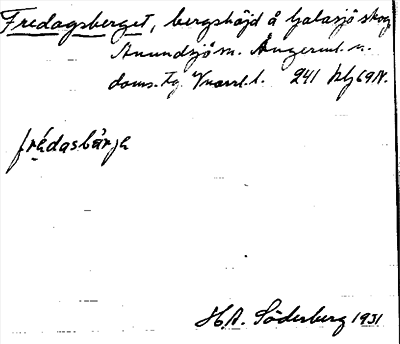 Fredagsberget, bergshöjd å Galasjö skog
Anundsjö sn. Ångerml. n.
doms. tg. Vnorrl. l. 241 Klj 69N.
frédasbärje
H.A. Söderberg 1931